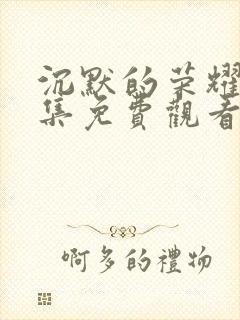 沉默的荣耀
集免費觀看
啊多的禮物